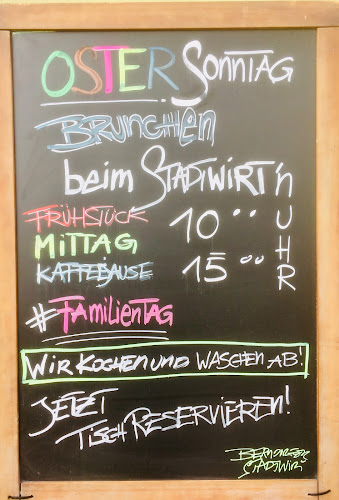 OSTER SONNTAG
BRUNCHEN
beim STADTWIRT'n
FRÜHSTÜCK 10°° UHR
MITTAG
KAFFEEJAUSE 15°°
#FAMILIENTAG
WIR KOCHEN UND WASCHEN AB!
JETZT
TISCH RESERVIEREN!
STADTWIRT